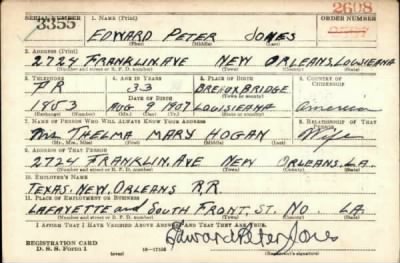 SERIAL NUMBER 1. NAME (Print) ORDER NUMBER
3355 EDWARD PETER JONES 2608
(First) (Middle) (Last)
2. ADDRESS (Print)
2724 FRANKLIN AVE NEW ORLEANS, LOUISIEANA
(Number and street or R. F. D. number) (Town) (County) (State)
3. TELEPHONE 4. AGE IN YEARS 5. PLACE OF BIRTH 6. COUNTRY OF CITIZENSHIP
FR 33 BREAUX BRIDGE
DATE OF BIRTH (Town or county)
1953 AUG 9 1907 LOUISIEANA American
(Exchange) (Number) (Mo.) (Day) (Yr.) (State or country)
7. NAME OF PERSON WHO WILL ALWAYS KNOW YOUR ADDRESS 8. RELATIONSHIP OF THAT PERSON
Mrs THELMA MARY HOGAN Wife
(Mr., Mrs., Miss) (First) (Middle) (Last)
9. ADDRESS OF THAT PERSON
2724 FRANKLIN, AVE NEW ORLEANS, LA.
(Number and street or R. F. D. number) (Town) (County) (State)
10. EMPLOYER'S NAME
TEXAS, NEW, ORLEANS R.R.
11. PLACE OF EMPLOYMENT OR BUSINESS
LAFAYETTE and SOUTH FRONT, ST. N.O. LA.
(Number and street or R. F. D. number) (Town) (County) (State)
I AFFIRM THAT I HAVE VERIFIED ABOVE ANSWERS AND THAT THEY ARE TRUE.
REGISTRATION CARD
D. S. S. Form 1 (over) 16—17105 Edward Peter Jones
(Registrant's signature)